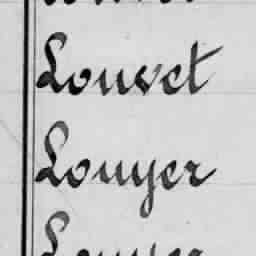 Louvet
Louyer